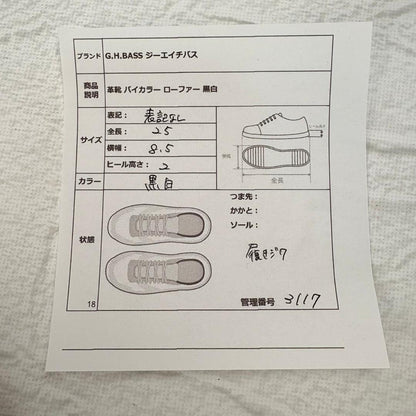 ブランド G.H.BASS ジーエイチバス
商品説明 革靴 バイカラー ローファー 黒白
サイズ
表記: 表記なし
全長: 25
横幅: 8.5
ヒール高さ: 2
ヒール高さ
横幅
全長
カラー 黒白
状態
つま先:
かかと:
ソール:
履きジワ
18
管理番号 3117